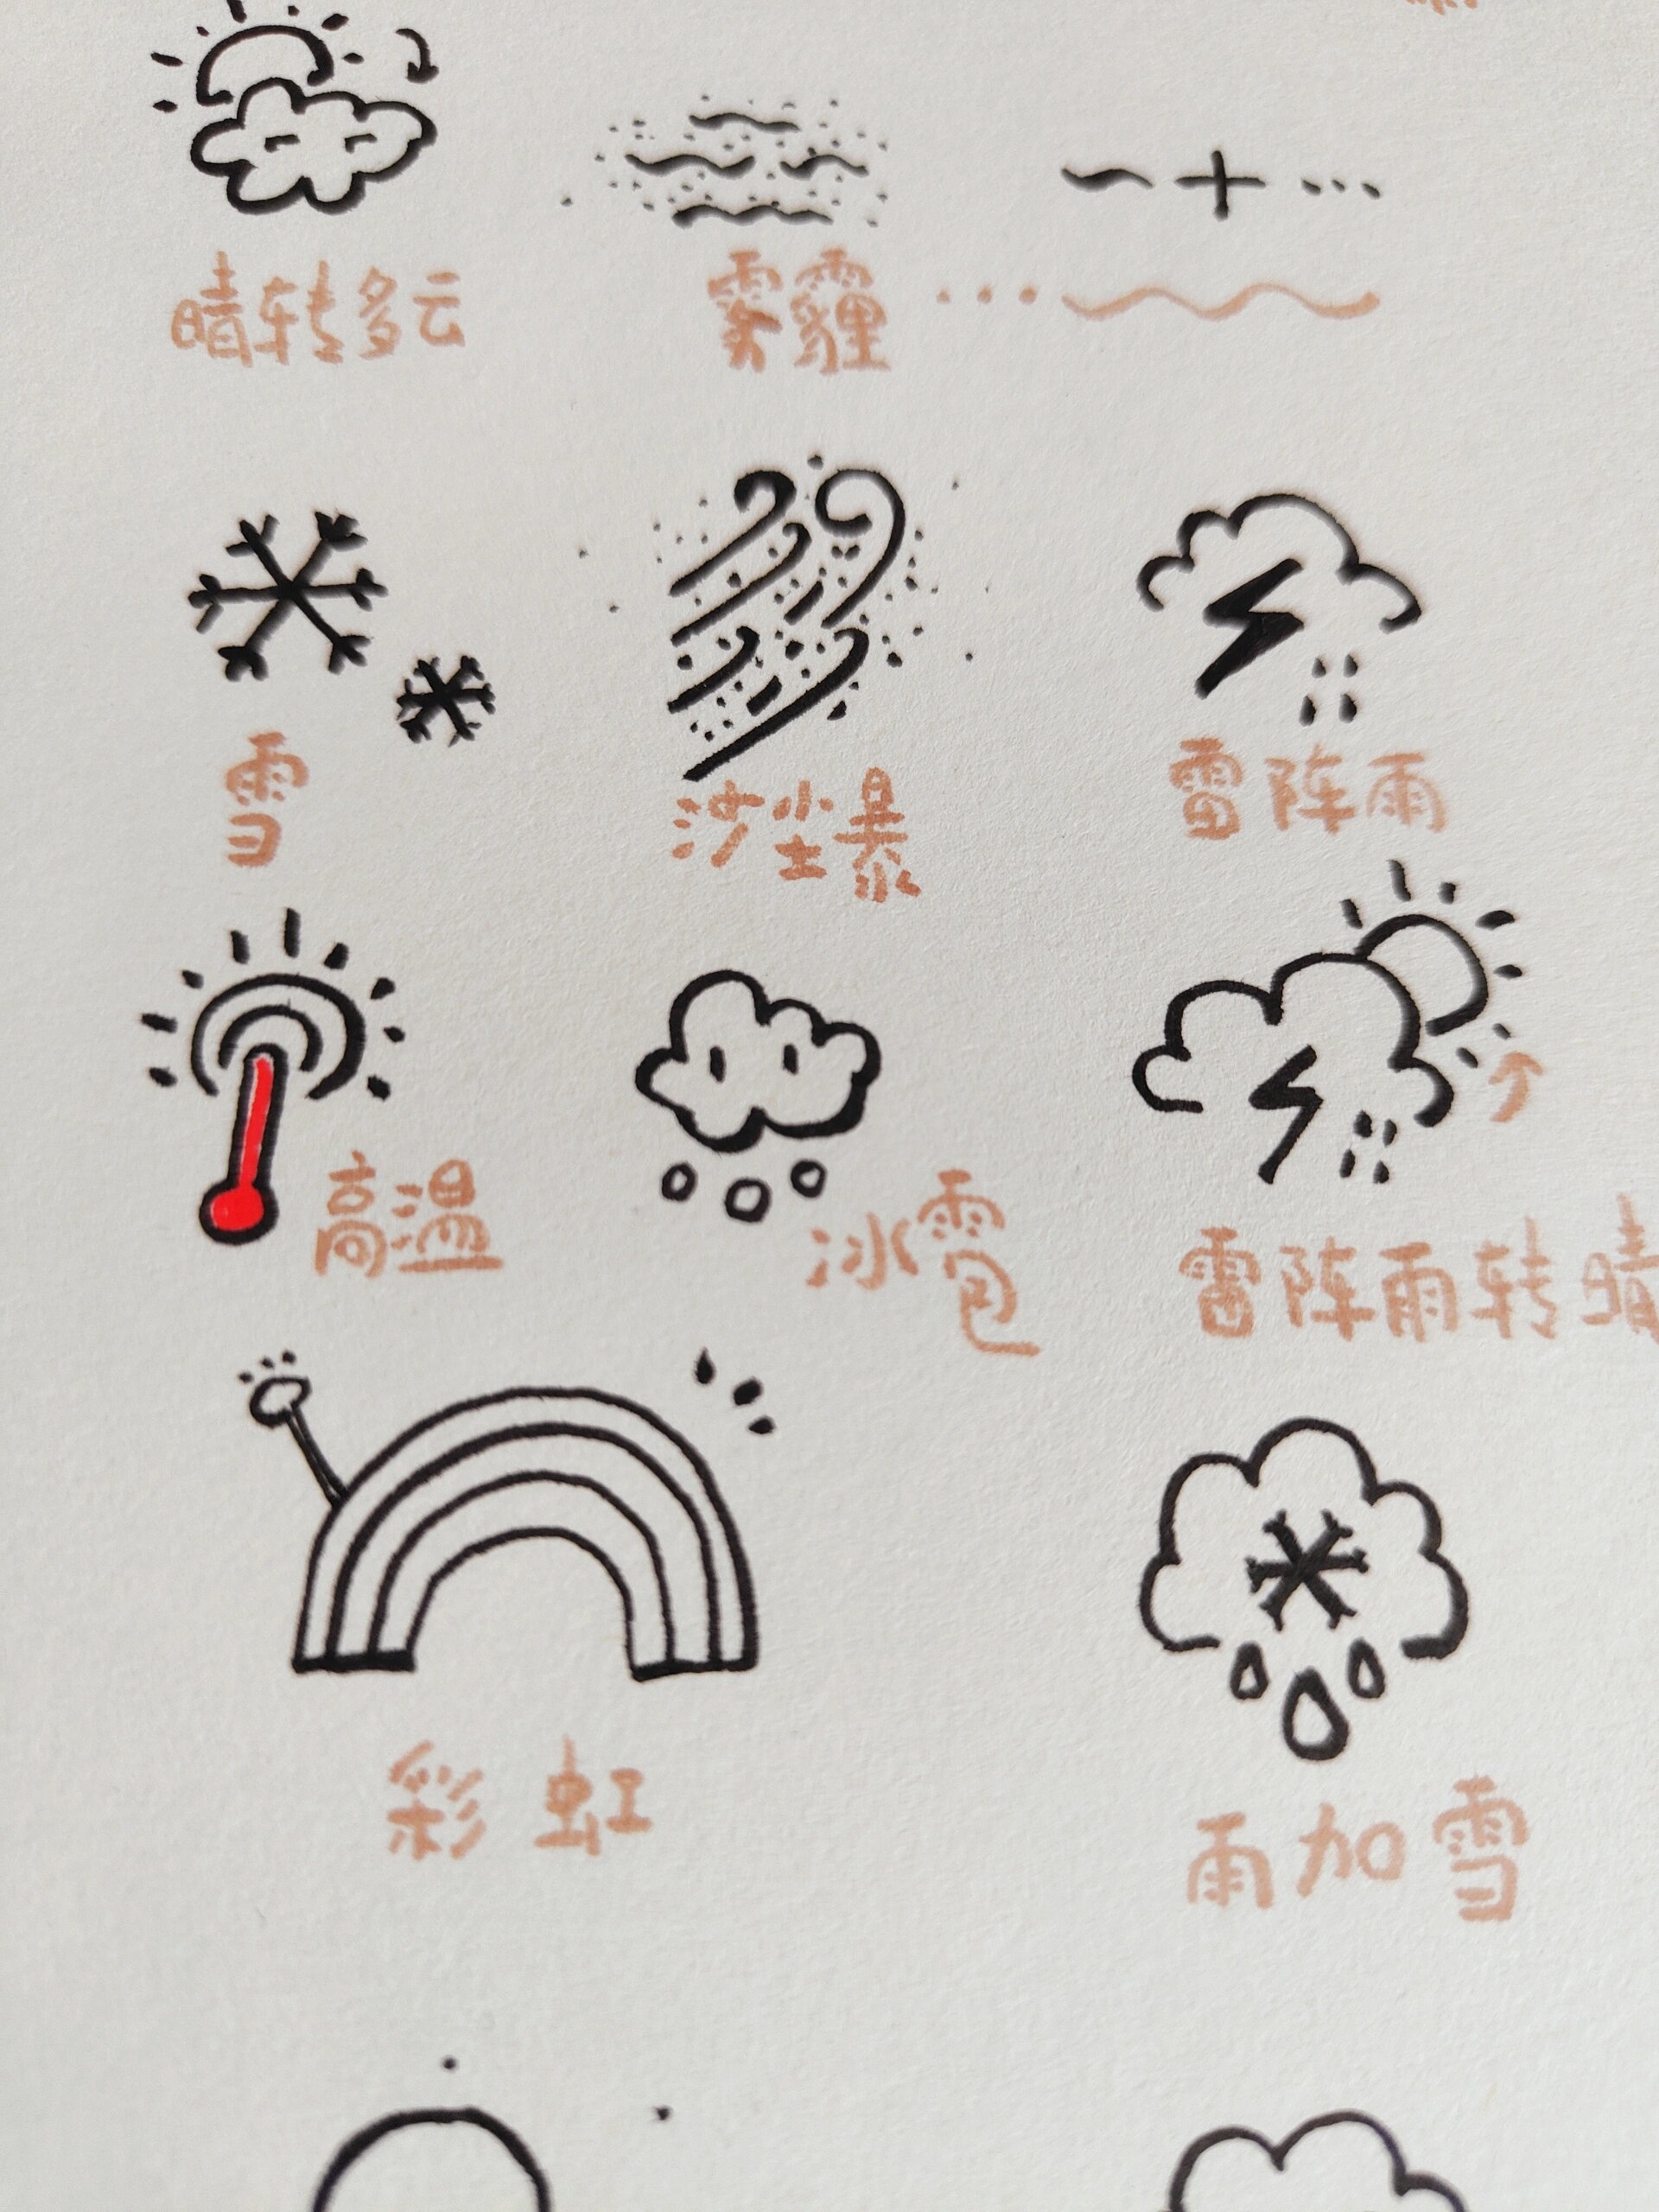 晴转多云
雾霾
雪
沙尘暴
雷阵雨
高温
冰雹
雷阵雨转晴
彩虹
雨加雪